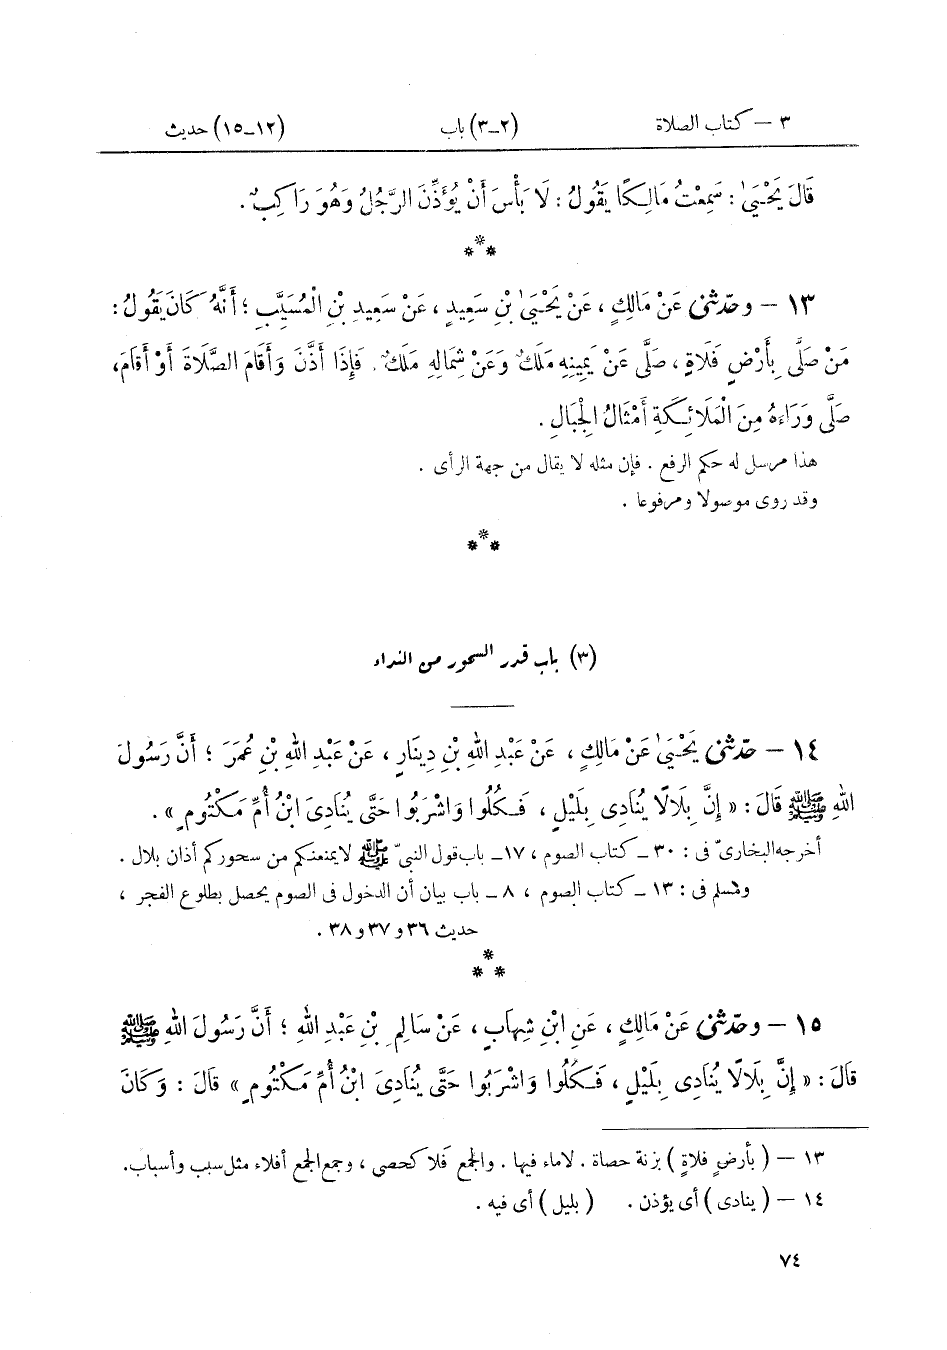 ٣ — كتاب الصلاة (٢-٣) باب (١٢-١٥) حديث
قَالَ يَحْيَىٰ : سَمِعْتُ مَالِكًا يَقُولُ : لَا بَأْسَ أَنْ يُؤَذِّنَ الرَّجُلُ وَهُوَ رَاكِبٌ .
***
١٣ — وحدّثنى عَنْ مَالِكٍ ، عَنْ يَحْيَىٰ بْنِ سَعِيدٍ ، عَنْ سَعِيدِ بْنِ الْمُسَيَّبِ ؛ أَنَّهُ كَانَ يَقُولُ :
مَنْ صَلَّى بِأَرْضِ فَلَاةٍ ، صَلَّى عَنْ يَمِينِهِ مَلَكٌ وَعَنْ شِمَالِهِ مَلَكٌ . فَإِذَا أَذَّنَ وَأَقَامَ الصَّلَاةَ أَوْ أَقَامَ ،
صَلَّى وَرَاءَهُ مِنَ الْمَلَائِكَةِ أَمْثَالُ الْجِبَالِ .
هذا مرسل له حكم الرفع . فإن مثله لا يقال من جهة الرأى .
وقد روى موصولا ومرفوعا .
***
(٣) باب قدر السحور من النداء
١٤ — حدّثنى يَحْيَىٰ عَنْ مَالِكٍ ، عَنْ عَبْدِ اللهِ بْنِ دِينَارٍ ، عَنْ عَبْدِ اللهِ بْنِ عُمَرَ ؛ أَنَّ رَسُولَ
اللهِ ﷺ قَالَ : « إِنَّ بِلَالًا يُنَادِى بِلَيْلٍ ، فَكُلُوا وَاشْرَبُوا حَتَّى يُنَادِىَ ابْنُ أُمِّ مَكْتُومٍ » .
أخرجه البخارىّ فى : ٣٠ — كتاب الصوم ، ١٧ — باب قول النبىّ ﷺ لا يمنعنكم من سحوركم أذان بلال .
ومسلم فى : ١٣ — كتاب الصوم ، ٨ — باب بيان أن الدخول فى الصوم يحصل بطلوع الفجر ،
حديث ٣٦ و ٣٧ و ٣٨ .
***
١٥ — وحدّثنى عَنْ مَالِكٍ ، عَنِ ابْنِ شِهَابٍ ، عَنْ سَالِمِ بْنِ عَبْدِ اللهِ ؛ أَنَّ رَسُولَ اللهِ ﷺ
قَالَ : « إِنَّ بِلَالًا يُنَادِى بِلَيْلٍ ، فَكُلُوا وَاشْرَبُوا حَتَّى يُنَادِىَ ابْنُ أُمِّ مَكْتُومٍ » قَالَ : وَكَانَ
١٣ — ( بأرضِ فلاةٍ ) بزنة حصاة . لا ماء فيها . والجمع فَلا كحصى ، وجمع الجمع أفلاء مثل سبب وأسباب .
١٤ — ( ينادى ) أى يؤذن . ( بليل ) أى فيه .
٧٤